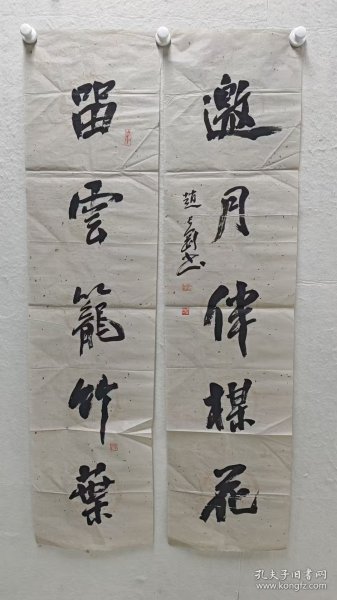 邀月伴楳花
趙
留雲籠竹葉
孔夫子旧书网
www.kongfz.com